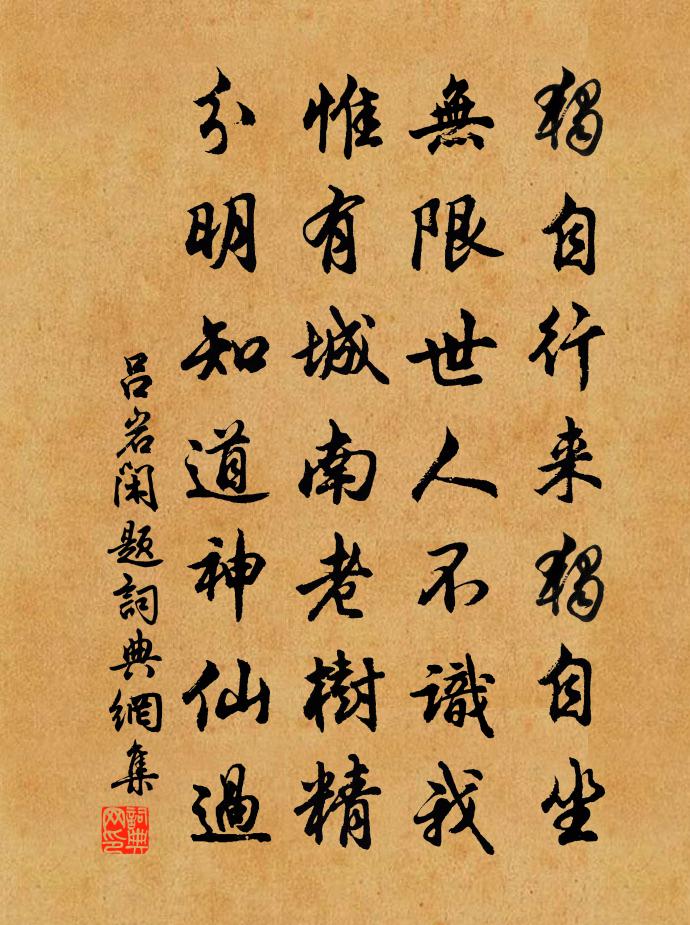 獨自行来獨自坐
無限世人不識我
惟有城南老樹精
分明知道神仙過
吕岩閑題詞典網集
詞典网印